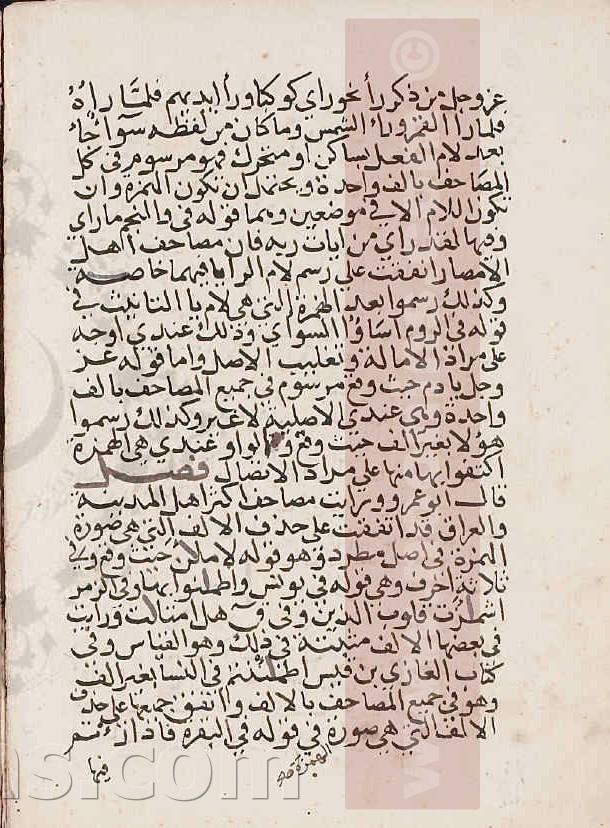 عز وجل من ذكر رأ نحو راي كوكبا ورأ ايديهم فلما راه
فلما را القمر ورا الشمس وما كان من لفظه سوا جا
بعد لام الفعل ساكن او متحرك فهو مرسوم في كل
المصاحف بالف واحدة ويحتمل ان تكون الهمزة وان
تكون اللام الا في موضعين وهما قوله في والنجم ما راي
وفيها لقد راي من ايات ربه فان مصاحف اهل
الامصار اتفقت على رسم لام الرا يا فيهما خاصة
وكذلك رسموا بعد الهمزة التي هي لام يا التانيث في
قوله في الروم اساؤا السواي وذلك عندي اوجه
على مراد الاماله وتغليب الاصل واما قوله عز
وجل يادم حيث وقع مرسوم في جميع المصاحف بالف
واحدة وهي عندي الاصلية لاغير وكذلك رسموا
هولا بغير الف حيث وقع والواو عندي هي الهمزة
اكتفوا بها منها على مراد الاتصال فصل
قال ابو عمرو ورايت مصاحف اكثر اهل المدينة
والعراق قد اتفقت على حذف الالف التي هي صورة
الهمزة في اصل مطرد وهو قوله لاملان حيث وقع وفي
ثلاثة احرف وهي قوله في يونس واطمانوا بها وفي الزمر
اشمازت قلوب الذين وفي ق هل امتلات ورايت
في بعضها الالف مثبتة في ذلك وهو القياس وفي
كتاب الغازي بن قيس اطمئننتم في النسا بغير الف
وهو في جميع المصاحف بالالف واتفق جمعها على حذف
الالف التي هي صورة في قوله في البقرة فادارئتم
الهمزة صح
فيها